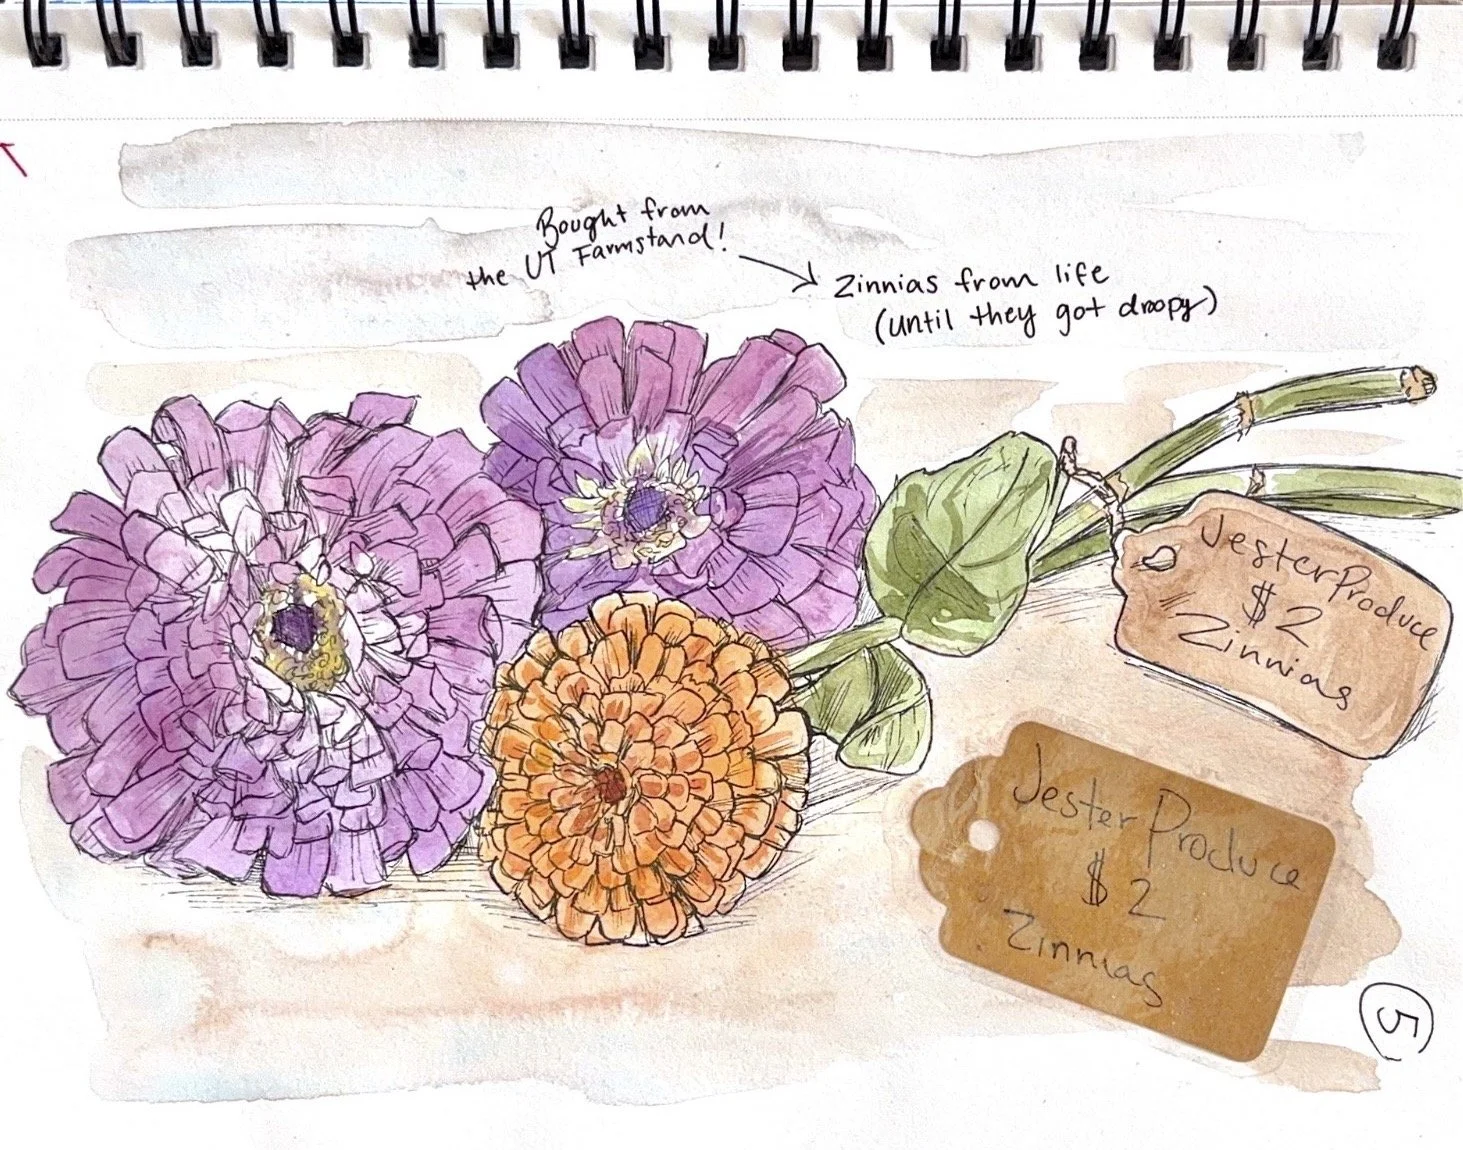 Bought from
the UT Farmstand!
Zinnias from life
(until they got droopy)
Jester Produce
$2
Zinnias
Jester Produce
$2
Zinnias
5